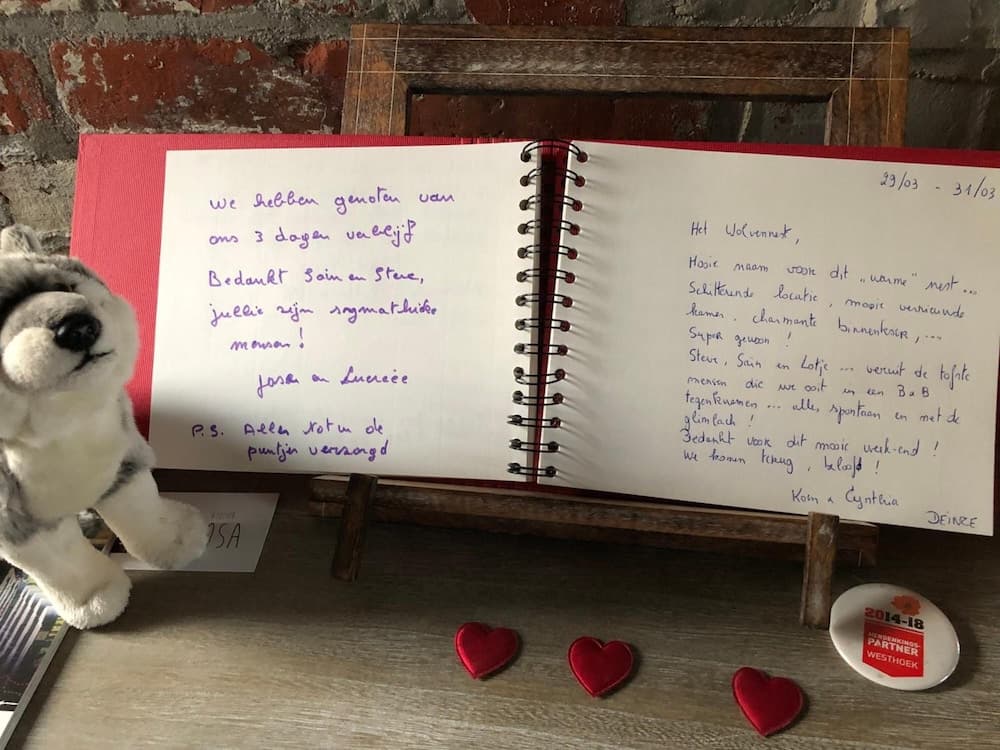 we hebben genoten van
ons 3 dagen verblijf
Bedankt Sain en Steve,
jullie zijn sympathieke
mensen!
Josée en Lucrèce
P.S. Alles tot in de
puntjes verzorgd
29/03 - 31/03
Het Wolvennest,
Mooie naam voor dit "warme" nest...
Schitterende locatie, mooie vernieuwde
kamer, charmante binnenkoer,...
Super gewoon!
Steve, Sain en Lotje... veruit de tofste
mensen die we ooit in een B&B
tegenkwamen... alles spontaan en met de
glimlach!
Bedankt voor dit mooie week-end!
We komen terug, beloofd!
Koen & Cynthia
DEINZE
2014-18
HERDENKINGS-
PARTNER
WESTHOEK